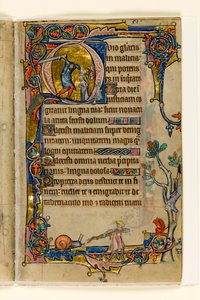 Quid gloriaris
in malicia
qui potens
es in iniquitate
Tota die in
iusticiam co
gitauit lingua tua: sicut nouacu
la acuta fecisti dolum
Dilexisti maliciam super benig
nitatem: iniquitatem magis qua
loqui equitatem
Dilexisti omnia uerba precipita
tionis: lingua dolosa
Propterea deus destruet te in fi
nem: euellet te et emigrabit te de
tabernaculo tuo et radicem tuam